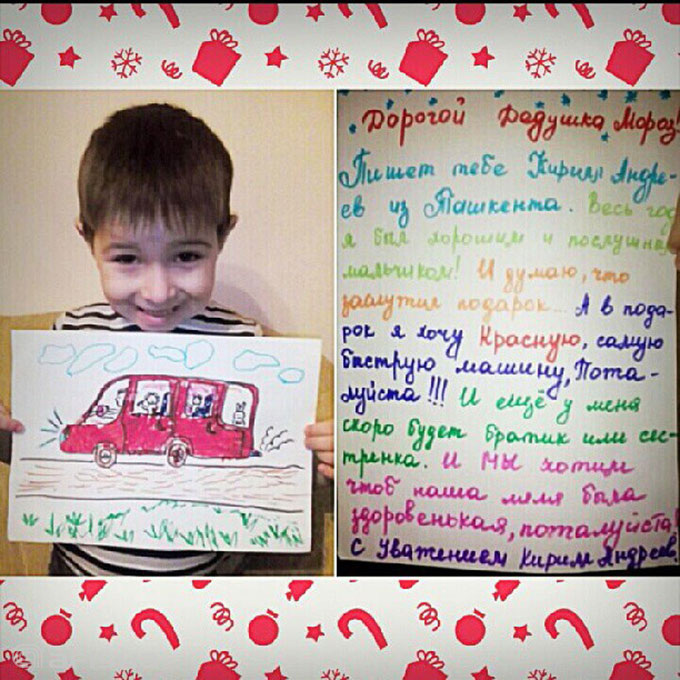 Дорогой Дедушка Мороз!
Пишет тебе Кирилл Андре-
ев из Ташкента. Весь год
я был хорошим и послушным
мальчиком! И думаю, что
заслужил подарок... А в пода-
рок я хочу Красную, самую
быструю машину, Пожа-
луйста!!! И ещё у меня
скоро будет братик или сес-
тренка. И МЫ хотим
чтоб наша ляля была
здоровенькая, пожалуйста!
С Уважением Кирилл Андреев.